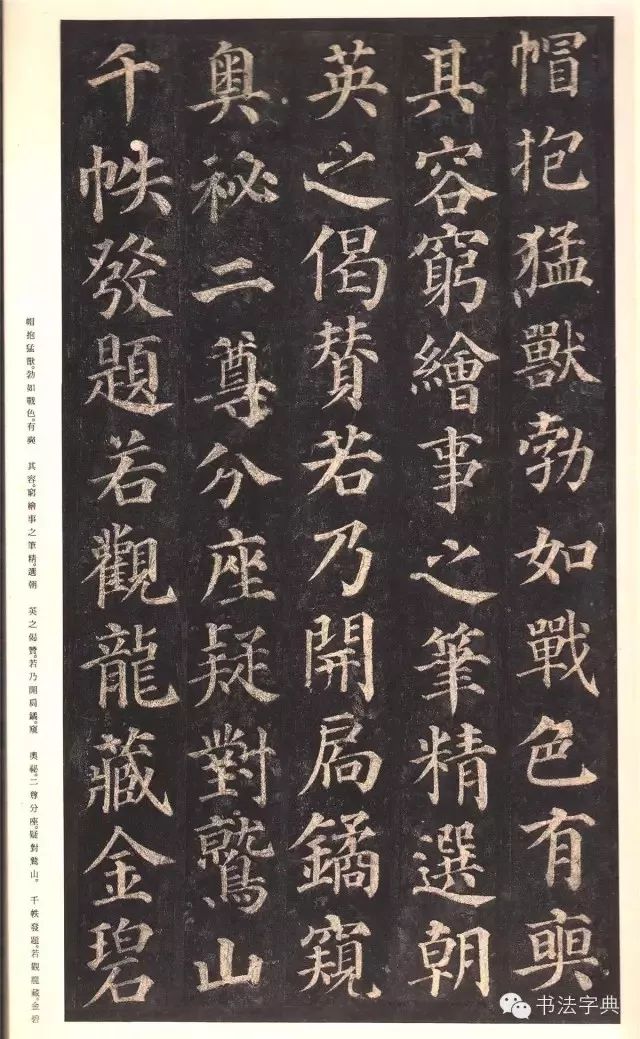 帽抱猛獸勃如戰色有奭
其容窮繪事之筆精選朝
英之偈贊若乃開扃鐍窺
奧祕二尊分座疑對鷲山
千帙發題若觀龍藏金碧
帽抱猛獸。勃如戰色。有奭 其容。窮繪事之筆精。選朝 英之偈贊。若乃開扃鐍。窺 奧祕。二尊分座。疑對鷲山。 千帙發題。若觀龍藏。金碧
书法字典